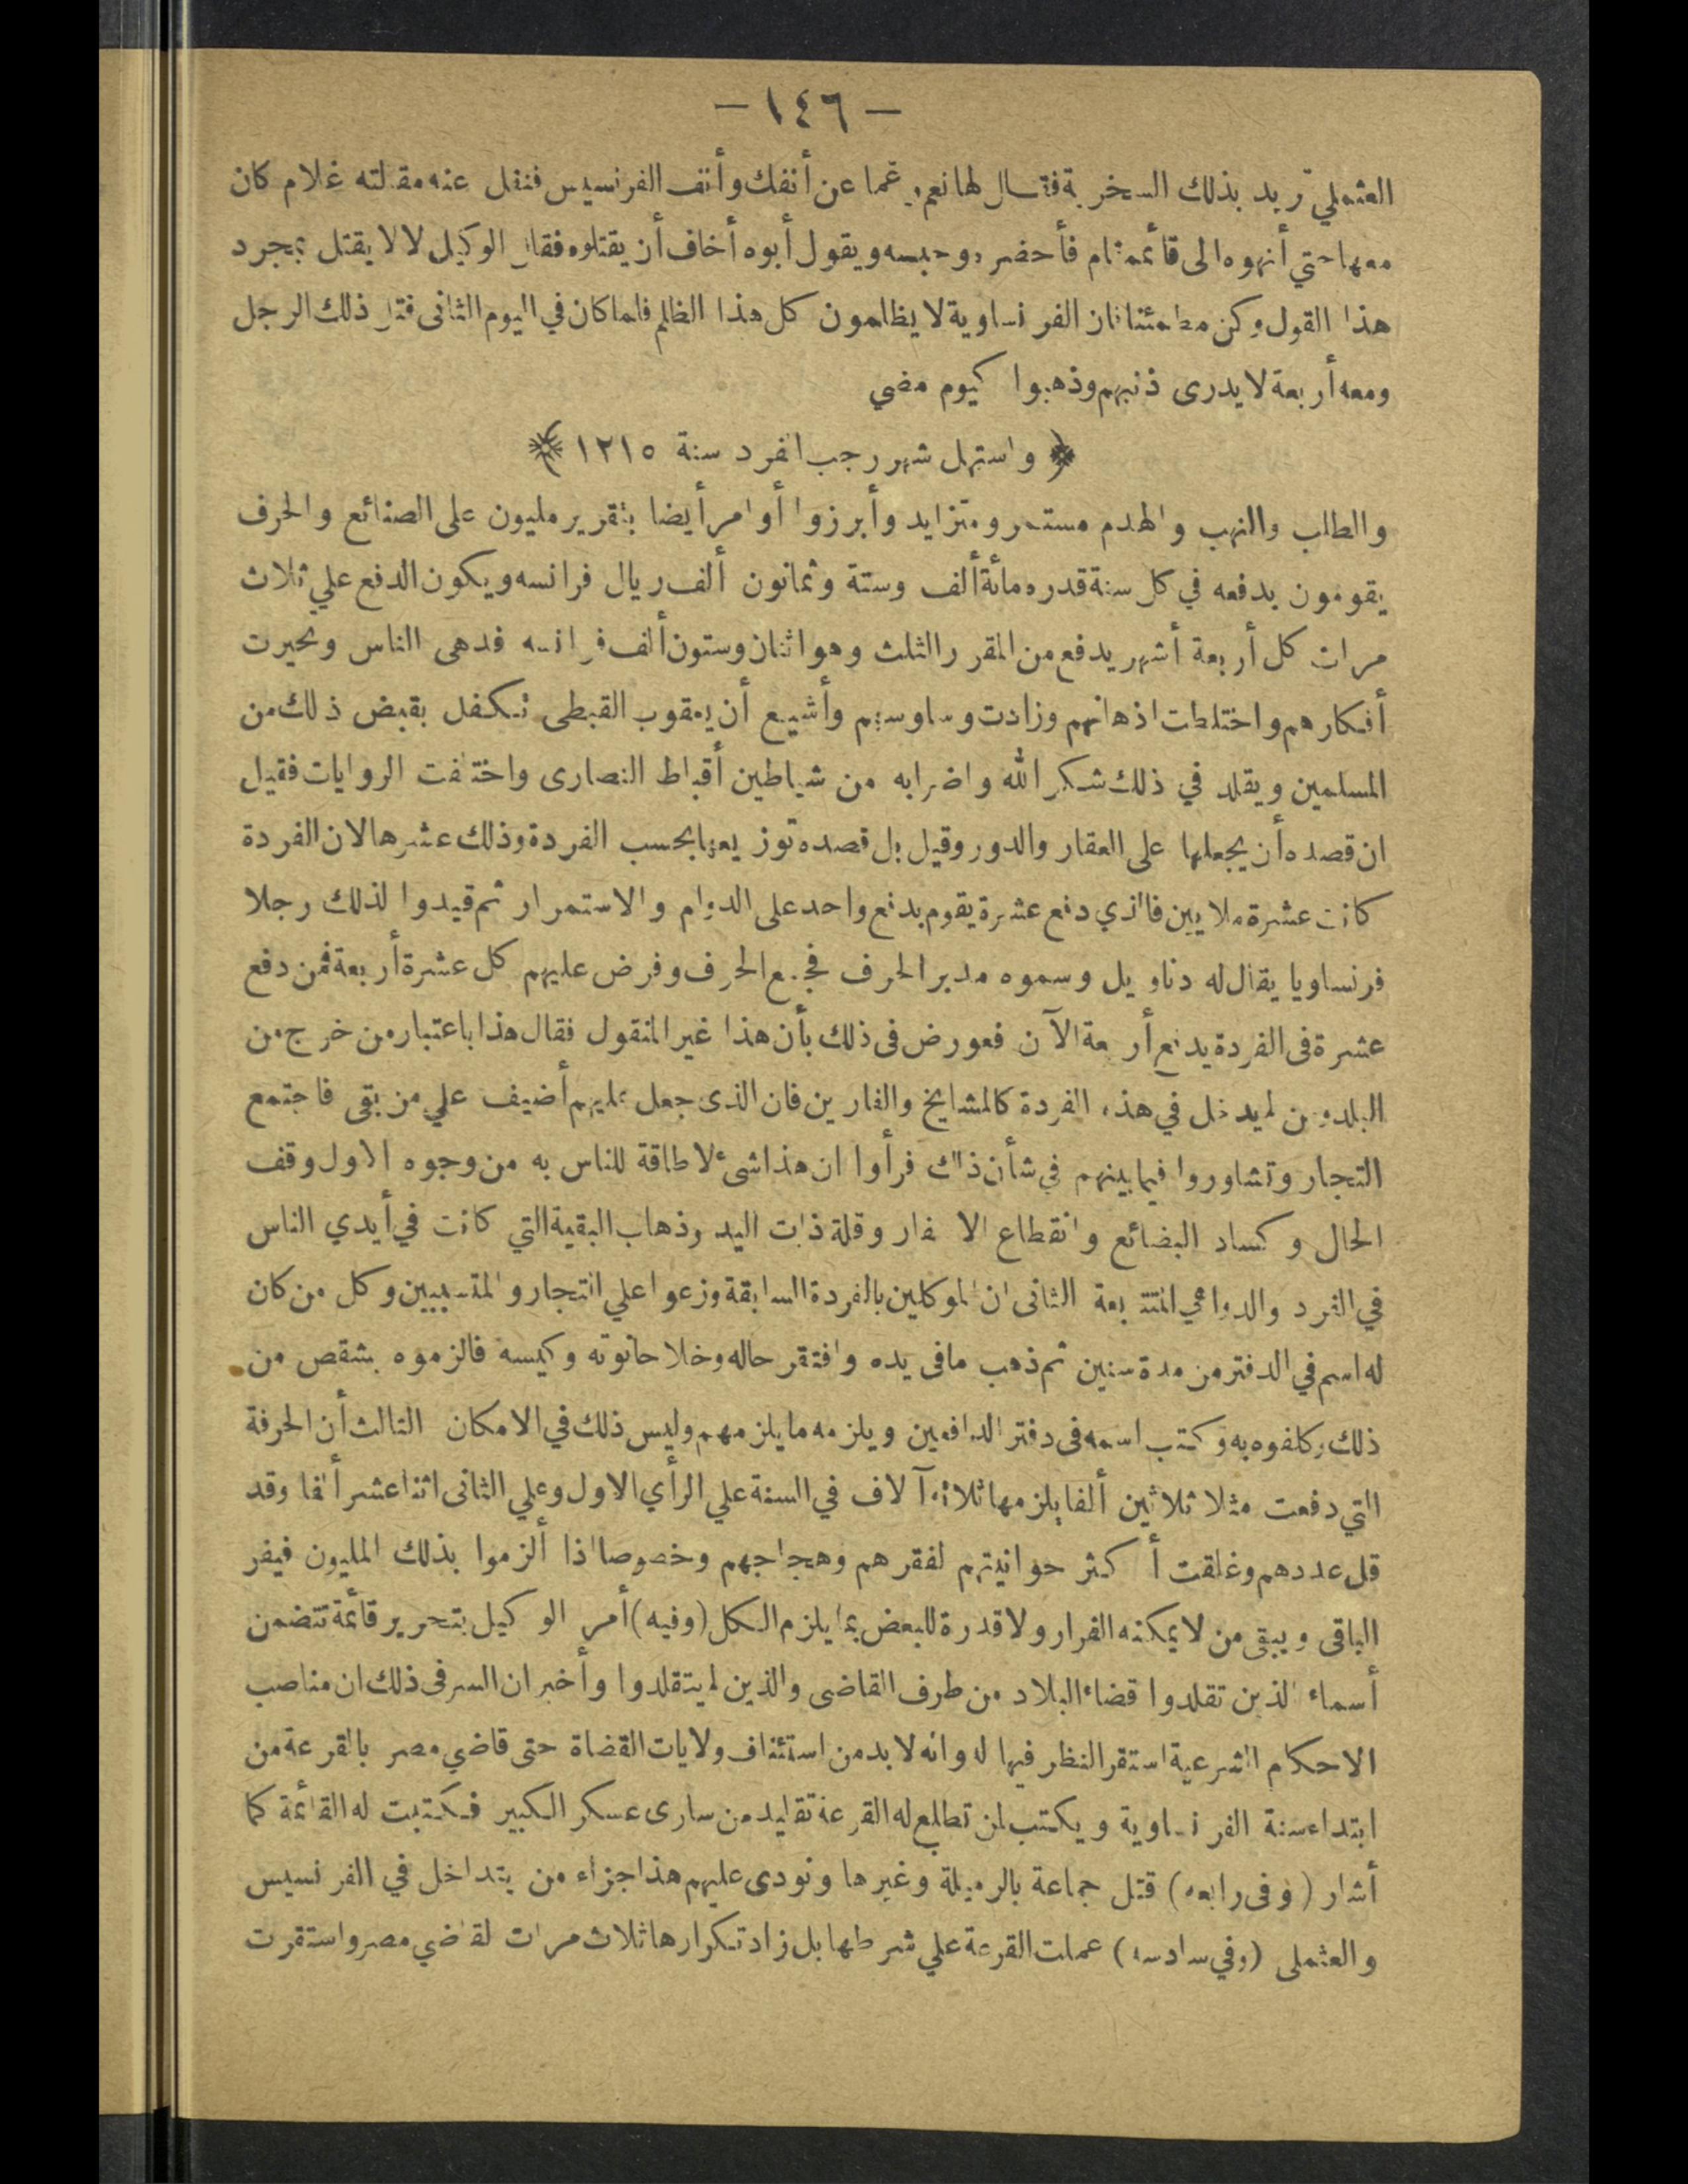 — ١٤٦ —
العثملي تريد بذلك السخرية فقال لها نعم رغما عن أنفك وأنف الفرنسيس فنقل عنه مقالته غلام كان
معها حتي أنهوه الى قائمقام فأحضره وحبسه ويقول أبوه أخاف أن يقتلوه فقال الوكيل لا لا يقتل بمجرد
هذا القول وكن مطمئنا فان الفرنساوية لا يظلمون كل هذا الظلم فلما كان في اليوم الثانى قتل ذلك الرجل
ومعه أربعة لا يدرى ذنبهم وذهبوا كيوم مضي
﴿ واستهل شهر رجب الفرد سنة ١٢١٥ ﴾
والطلب والنهب والهدم مستمر ومتزايد وأبرزوا أوامر أيضا بتقرير مليون على الصنائع والحرف
يقومون بدفعه في كل سنة قدره مائة ألف وستة وثمانون ألف ريال فرانسه ويكون الدفع علي ثلاث
مرات كل أربعة أشهر يدفع من المقرر الثلث وهو اثنان وستون ألف فرانسه فدهى الناس وتحيرت
أفكارهم واختلطت اذهانهم وزادت وساوسهم وأشيع أن يعقوب القبطى تكفل بقبض ذلك من
المسلمين ويقلد في ذلك شكر الله واضرابه من شياطين أقباط النصارى واختلفت الروايات فقيل
ان قصده أن يجعلها على العقار والدور وقيل بل قصده توزيعها بحسب الفردة وذلك عشرها لان الفردة
كانت عشرة ملايين فالذي دفع عشرة يقوم بدفع واحد على الدوام والاستمرار ثم قيدوا لذلك رجلا
فرنساويا يقال له دناويل وسموه مدبر الحرف فجمع الحرف وفرض عليهم كل عشرة أربعة فمن دفع
عشرة فى الفردة يدفع أربعة الآن فعورض فى ذلك بأن هذا غير المنقول فقال هذا باعتبار من خرج من
البلد ومن لم يدخل في هذه الفردة كالمشايخ والفارين فان الذى جعل عليهم أضيف علي من بقى فاجتمع
التجار وتشاوروا فيما بينهم في شأن ذلك فرأوا ان هذا شئ لا طاقة للناس به من وجوه الاول وقف
الحال وكساد البضائع وانقطاع الاسفار وقلة ذات اليد وذهاب البقية التي كانت في أيدي الناس
في الفرد والدواهي المتتابعة الثانى ان الموكلين بالفردة السابقة وزعوا علي التجار والمتسببين وكل من كان
له اسم في الدفتر من مدة سنين ثم ذهب مافى يده وافتقر حاله وخلا حانوته وكيسه فالزموه بشقص من
ذلك وكلفوه به وكتب اسمه فى دفتر الدافعين ويلزمه ما يلزمهم وليس ذلك في الامكان الثالث أن الحرفة
التي دفعت مثلا ثلاثين ألفا يلزمها ثلاثة آلاف في السنة علي الرأي الاول وعلي الثانى اثنا عشر ألفا وقد
قل عددهم وغلقت أكثر حوانيتهم لفقرهم وهجاجهم وخصوصا اذا ألزموا بذلك المليون فيفر
الباقى ويبقى من لا يمكنه الفرار ولا قدرة للبعض بما يلزم الكل (وفيه) أمر الوكيل بتحرير قائمة تتضمن
أسماء الذين تقلدوا قضاء البلاد من طرف القاضى والذين لم يتقلدوا وأخبر ان السر فى ذلك ان مناصب
الاحكام الشرعية استقر النظر فيها له وانه لا بد من استئناف ولايات القضاة حتى قاضي مصر بالقرعة من
ابتداء سنة الفرنساوية ويكتب لمن تطلع له القرعة تقليد من سارى عسكر الكبير فكتبت له القائمة كما
أشار (وفى رابعه) قتل جماعة بالرميلة وغيرها ونودى عليهم هذا جزاء من يتداخل في الفرنسيس
والعثملى (وفي سادسه) عملت القرعة علي شرطها بل زاد تكرارها ثلاث مرات لقاضي مصر واستقرت